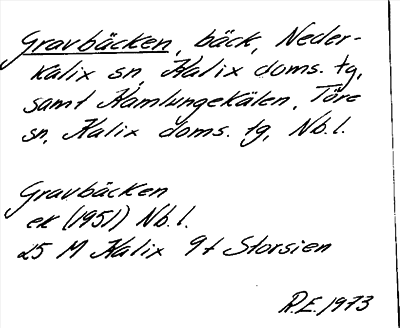 Gravbäcken, bäck, Neder-
Kalix sn, Kalix doms. tg,
samt Kamlungekälen, Töre
sn, Kalix doms. tg, Nb.l.
Gravbäcken
ek (1951) Nb.l.
25 M Kalix 9f Storsien
R.E. 1973